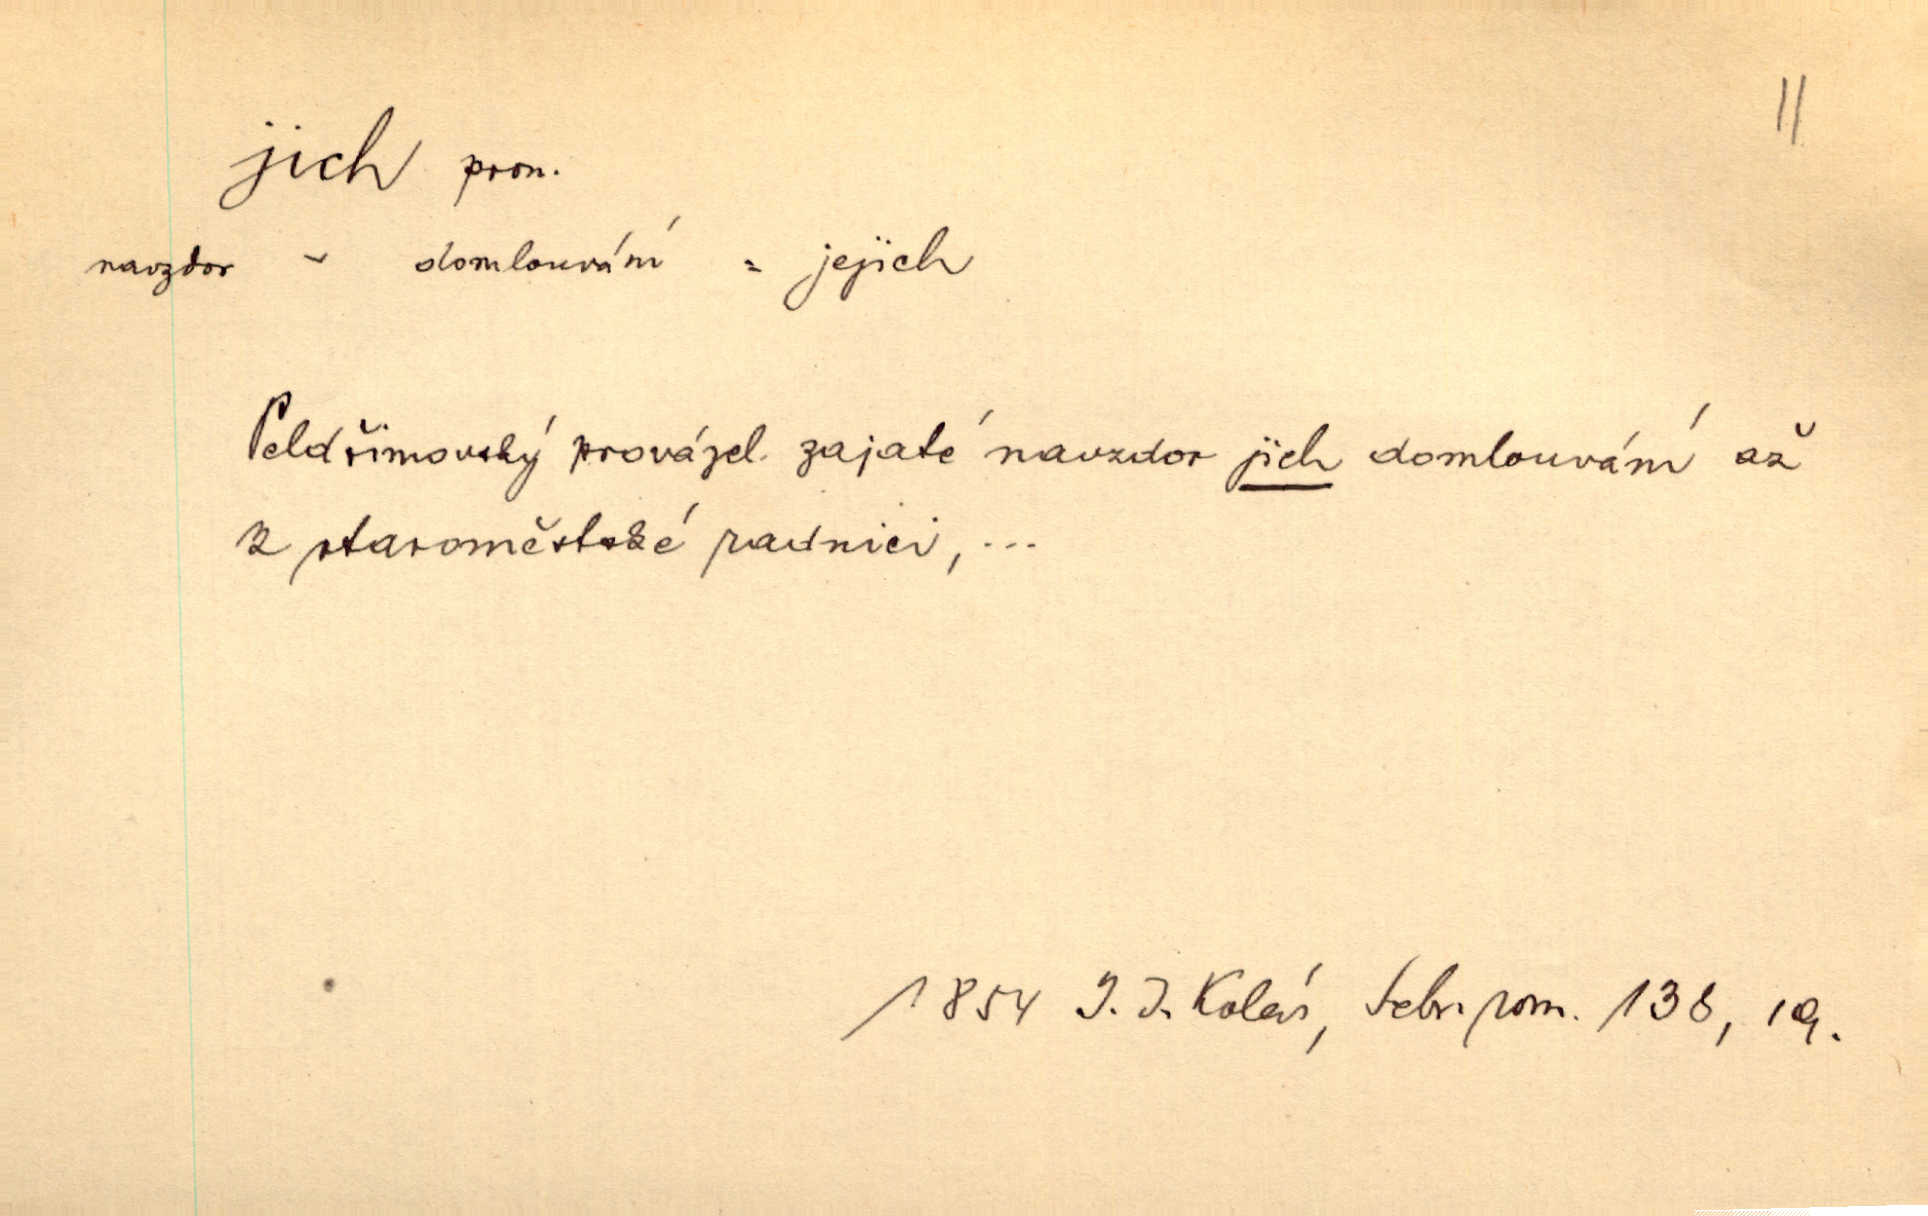 11
jich pron.
navzdor ~ domlouvání = jejich
Peldřimovský provázel zajaté navzdor jich domlouvání až
k staroměstské radnici, ...
1854 J. J. Kolár, Sebr. rom. 138, 19.